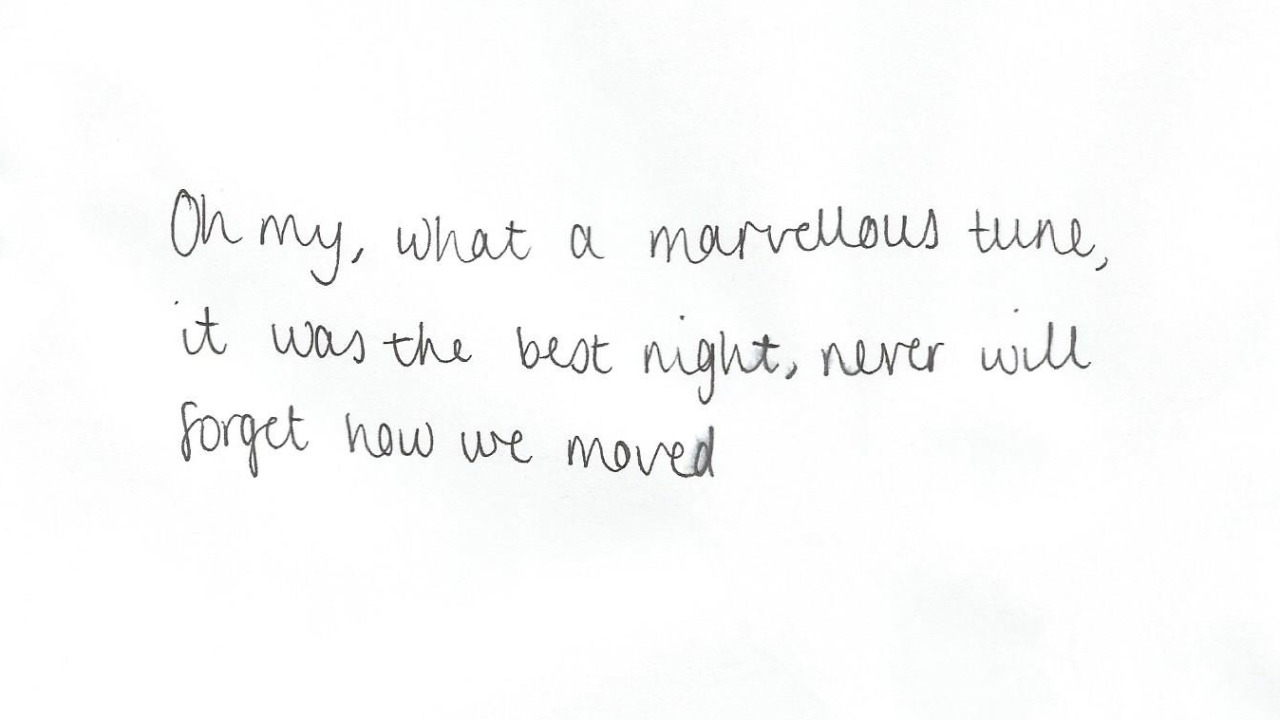 Oh my, what a marvellous tune,
it was the best night, never will
forget how we moved